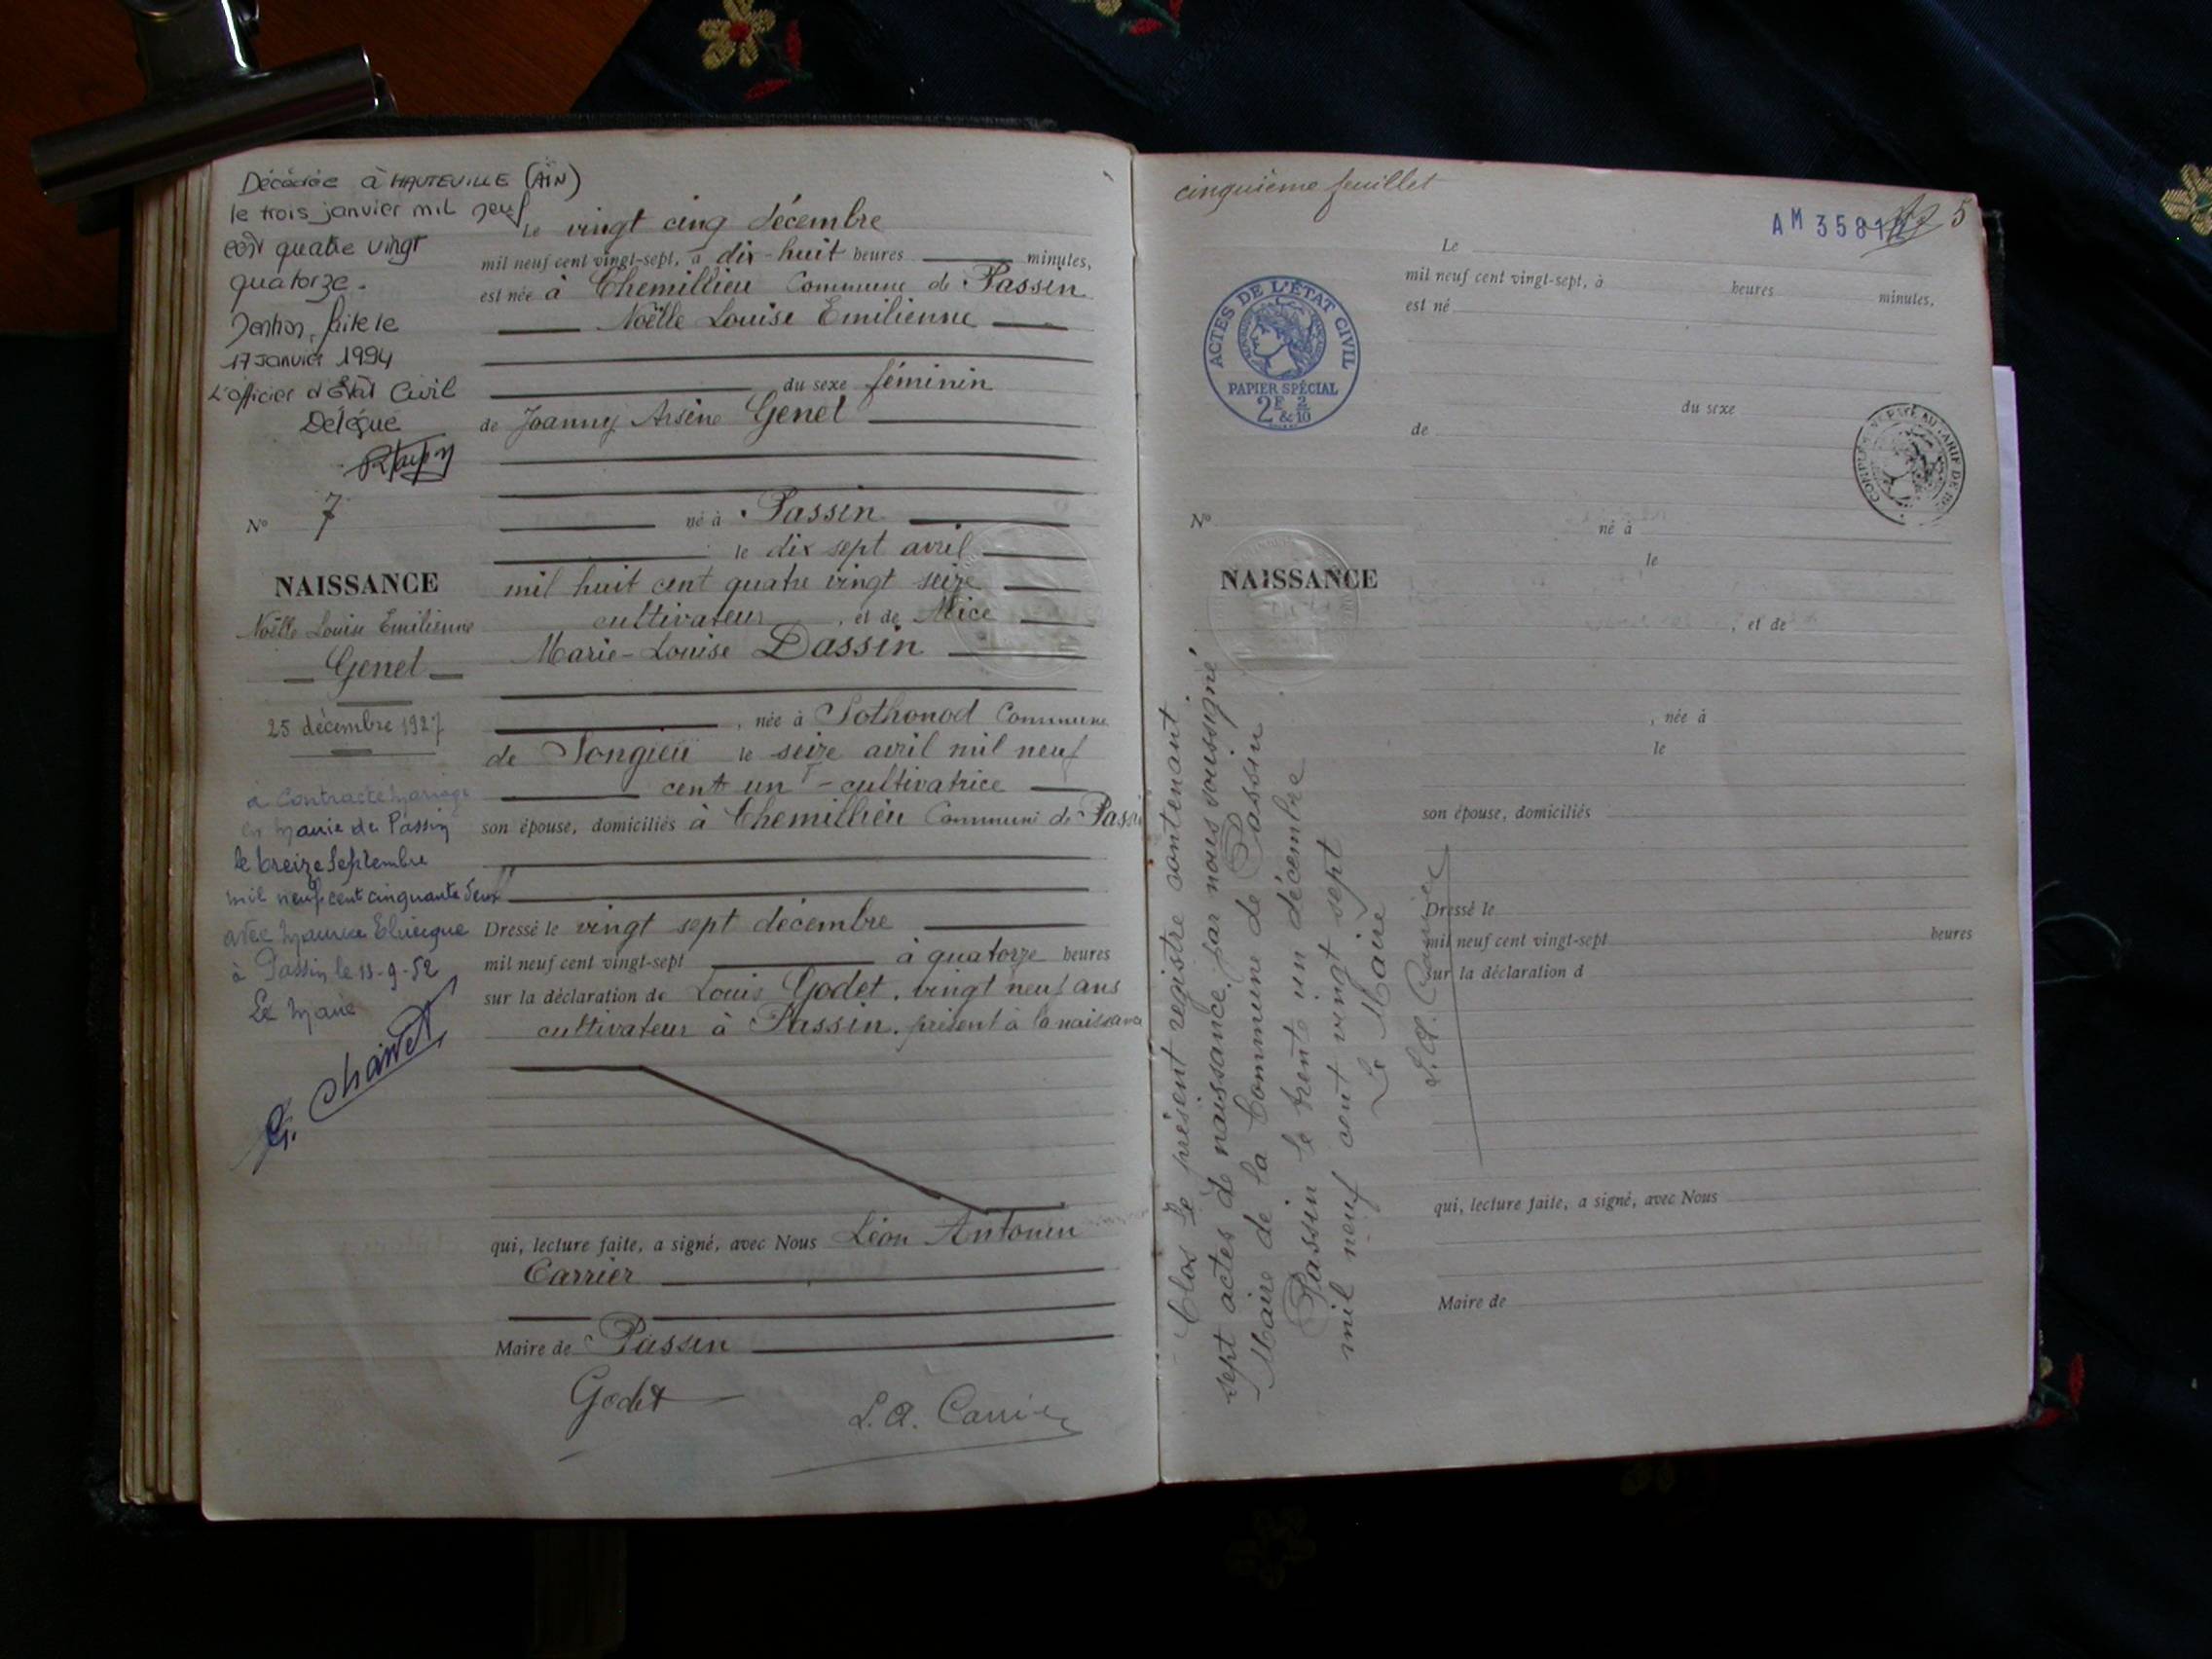 Décédée à HAUTEVILLE (AIN)
le trois janvier mil neuf
cent quatre vingt
quatorze.
Mention faite le
17 Janvier 1994
L'officier d'Etat Civil
Délégué
N° 7
NAISSANCE
Noëlle Louise Emilienne
Genet
25 décembre 1927
a contracté mariage
en Mairie de Passin
le treize Septembre
mil neuf cent cinquante deux
avec Maurice
à Passin le 13-9-52
Le Maire
Le vingt cinq décembre
mil neuf cent vingt-sept, à dix-huit heures minutes,
est née à Chemillieu Commune de Passin
Noëlle Louise Emilienne
du sexe féminin
de Joanny Arsène Genet
né à Passin
le dix sept avril
mil huit cent quatre vingt seize
cultivateur, et de Alice
Marie-Louise Dassin
, née à Sothonod Commune
de Songieu le seize avril mil neuf
cent un - cultivatrice
son épouse, domiciliés à Chemillieu Commune de Passi
Dressé le vingt sept décembre
mil neuf cent vingt-sept à quatorze heures
sur la déclaration de Louis Godet, vingt neuf ans
cultivateur à Passin, présent à la naissance
qui, lecture faite, a signé, avec Nous Léon Antonin
Carrier
Maire de Passin
Godet
L.A. Carrier
cinquième feuillet
AM 3581
5
ACTES DE L'ÉTAT CIVIL
PAPIER SPÉCIAL
2F & 2/10
Le
mil neuf cent vingt-sept, à heures minutes,
est né
du sexe
de
N°
né à
le
NAISSANCE
, et de
, née à
le
son épouse, domiciliés
Dressé le
mil neuf cent vingt-sept heures
sur la déclaration d
qui, lecture faite, a signé, avec Nous
Maire de
Clos le présent registre contenant
sept actes de naissance, par nous soussigné
Maire de la Commune de Passin
Passin le trente un décembre
mil neuf cent vingt sept
Le Maire
L.A. Carrier